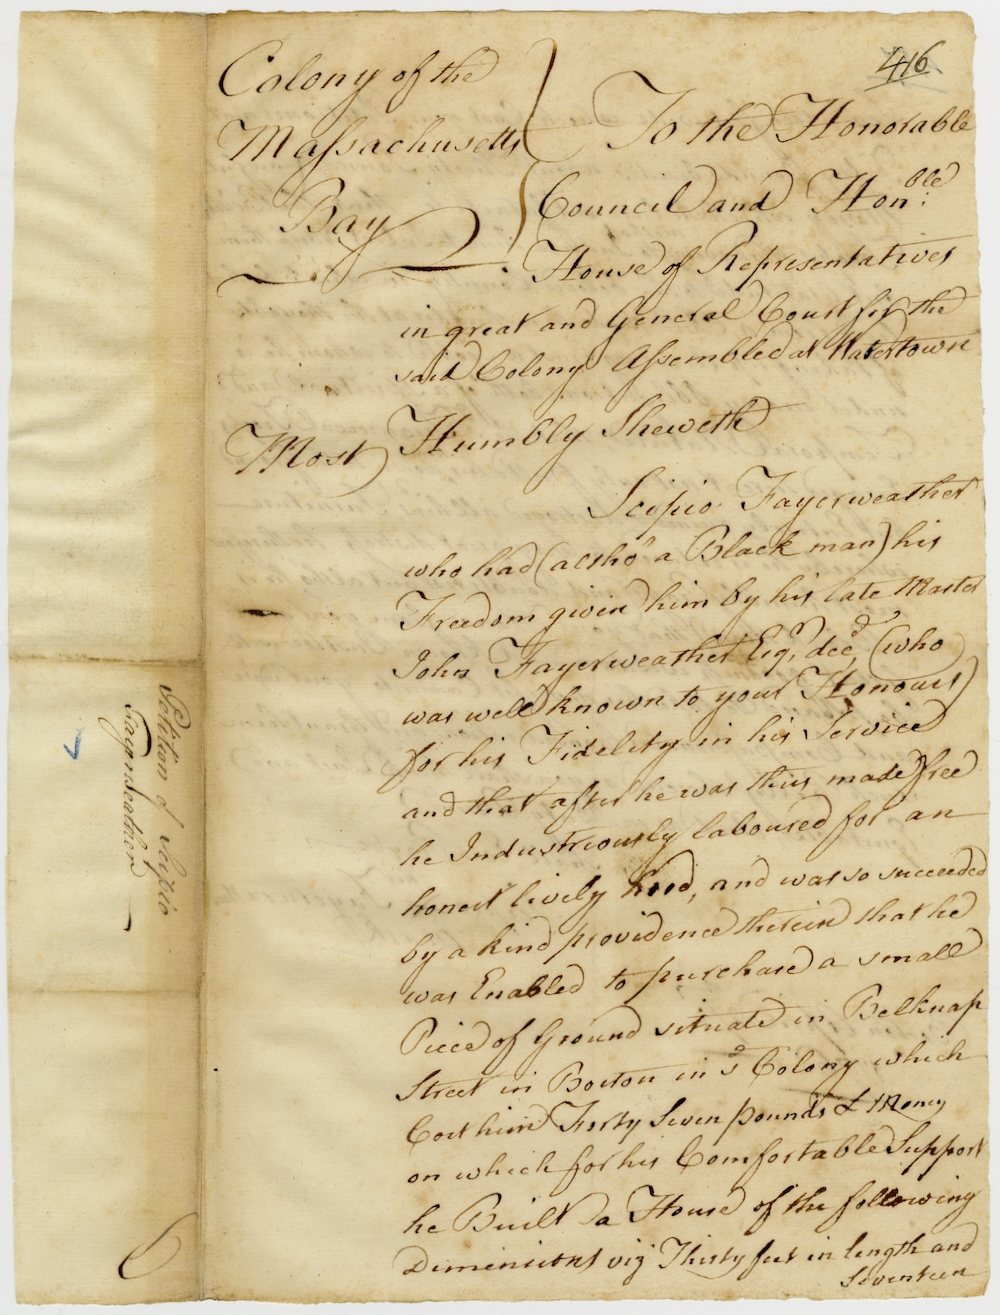 416
Colony of the
Massachusetts
Bay
To the Honorable
Council and Hon:ble
House of Representatives
in great and General Court for the
said Colony Assembled at Watertown
Most Humbly Sheweth
Scipio Fayerweather
who had (altho' a Black man) his
Freedom given him by his late Master
John Fayerweather Esqr. decd. (who
was well known to your Honours)
for his Fidelity in his Service
and that after he was thus made free
he Industriously laboured for an
honest lively hood, and was so succeeded
by a kind providence therein that he
was Enabled to purchase a small
Piece of Ground situate in Belknap
Street in Boston in sd Colony which
Cost him Forty Seven pounds L Money
on which for his Comfortable Support
he Built a House of the following
Dimensions viz Thirty feet in length and
Seventeen
Petition of Scipio
Fayerweather